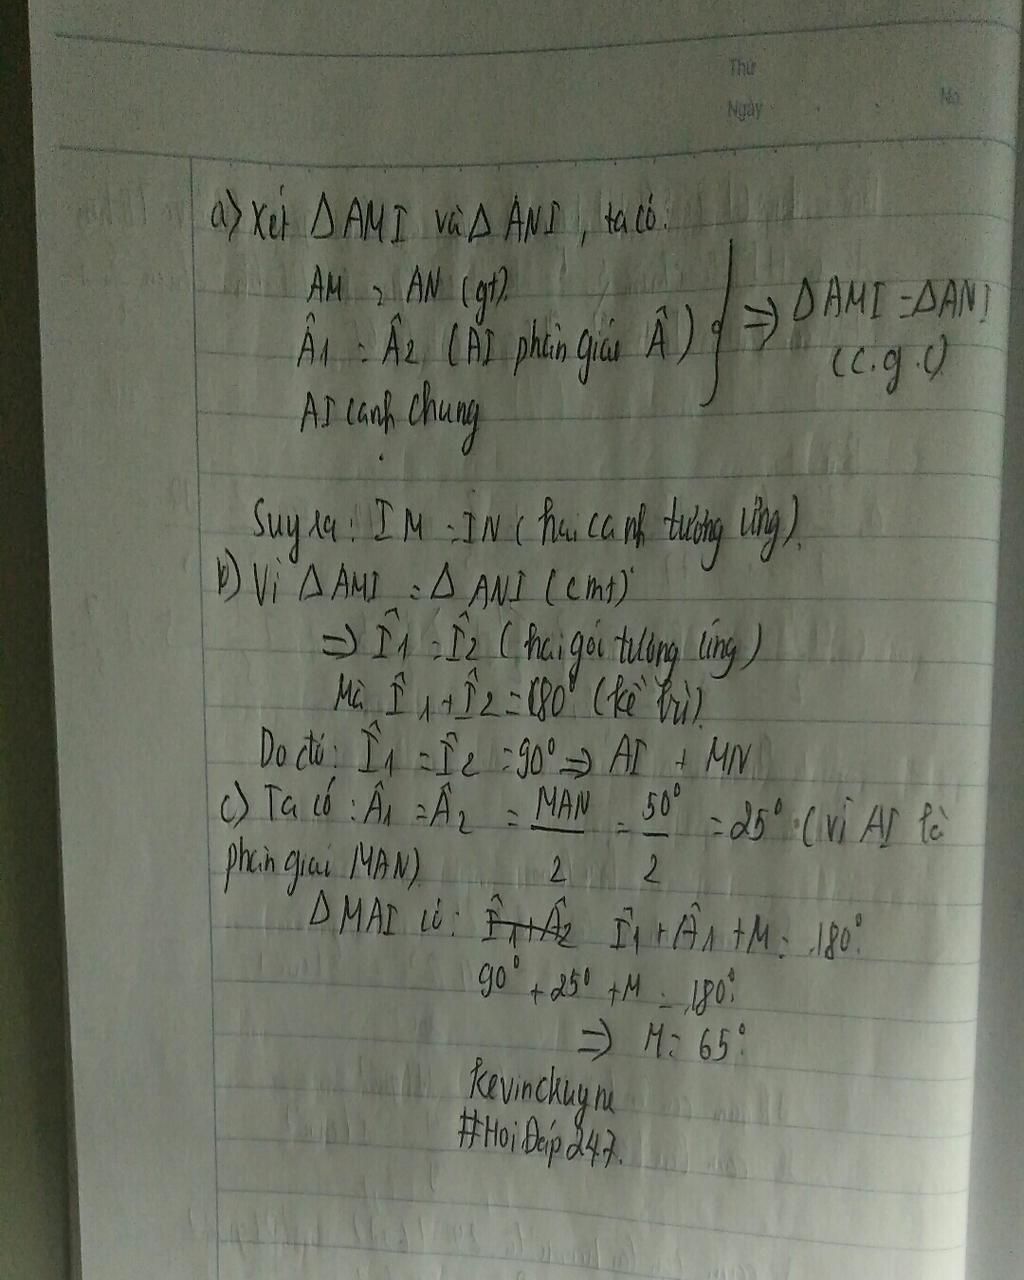 Thứ
Ngày
No.
a) Xét Δ AMI và Δ ANI, ta có:
AM = AN (gt).
Â1 = Â2 (AI phân giác Â) } ⇒ Δ AMI = Δ ANI
(c.g.c)
AI cạnh chung
Suy ra: IM = IN (hai cạnh tương ứng).
b) Vì Δ AMI = Δ ANI (cmt)
⇒ Î1 = Î2 (hai góc tương ứng)
Mà Î1 + Î2 = 180° (kề bù).
Do đó: Î1 = Î2 = 90° ⇒ AI + MN
c) Ta có: Â1 = Â2 = MAN/2 = 50°/2 = 25° (vì AI là
phân giác MAN)
Δ MAI có: Î1 + Â2 Î1 + Â1 + M = 180°
90° + 25° + M = 180°
⇒ M = 65°
kevinchuyne
#HoiĐáp247.